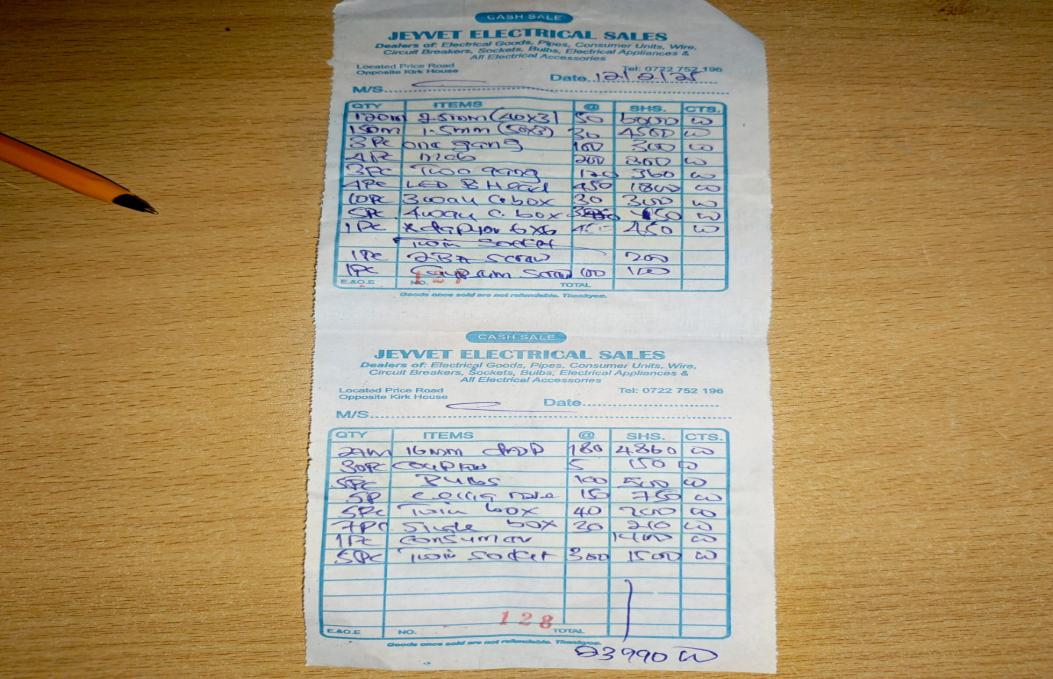 CASH SALE
JEYVET ELECTRICAL SALES
Dealers of: Electrical Goods, Pipes, Consumer Units, Wire,
Circuit Breakers, Sockets, Bulbs, Electrical Appliances &
All Electrical Accessories
Located Price Road
Opposite Kirk House
Tel: 0722 752 196
Date 12/2/25
M/S
QTY ITEMS @ SHS. CTS.
120m 2.5mm (40x3) 50 6000 w
150m 1.5mm (50x3) 30 4500 w
3Pc one gang 100 300 w
4Pc 200 800 w
3Pc Two gang 120 360 w
4Pc LED B Head 450 1800 w
10Pc 3way C. box 30 300 w
5Pc 4way C. box 150 w
1Pc Adaptor 6x6 450 w
Twin Socket
1Pc 2BA Screw 200
1Pc Gypsum Screw 100 100
E.&O.E NO. 127 TOTAL
Goods once sold are not refundable. Thankyou.
CASH SALE
JEYVET ELECTRICAL SALES
Dealers of: Electrical Goods, Pipes, Consumer Units, Wire,
Circuit Breakers, Sockets, Bulbs, Electrical Appliances &
All Electrical Accessories
Located Price Road
Opposite Kirk House
Tel: 0722 752 196
Date
M/S
QTY ITEMS @ SHS. CTS.
16mm 180 4860 w
30Pc 5 150 w
5Pc Bulbs 100 500 w
5P 150 750 w
5Pc Twin box 40 200 w
7Pc Single box 30 210 w
1Pc Consumer 1400 w
5Pc Twin Socket 300 1500 w
E.&O.E NO. 128 TOTAL
Goods once sold are not refundable. Thankyou.
23990 w